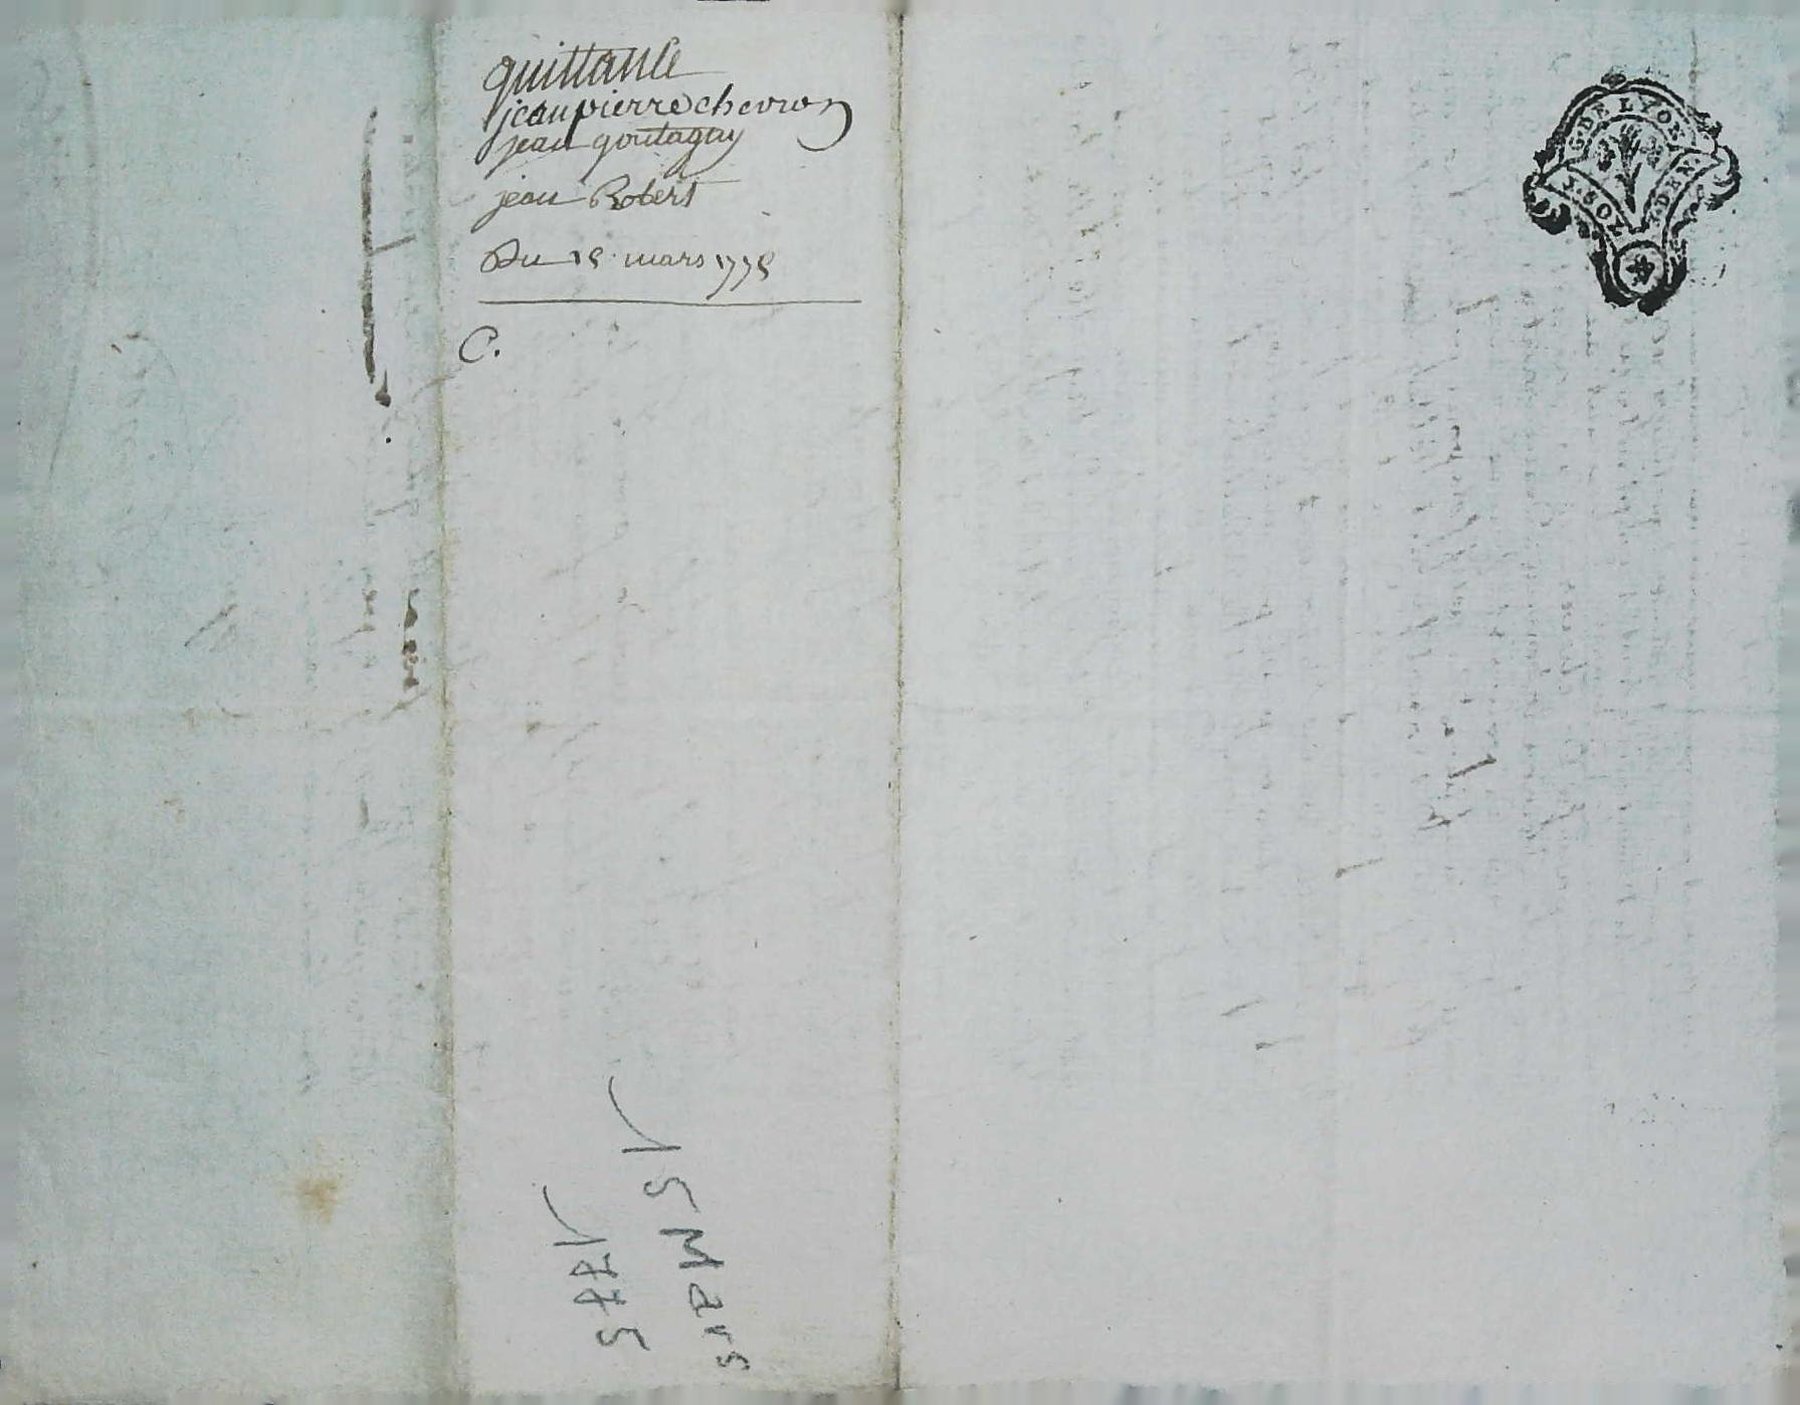 quittance
jean pierre chevron
jean goutagny
jean Robert
Du 15 mars 1775
C.
G. DE LYON
1. SOL
DEN.
15 Mars
1775